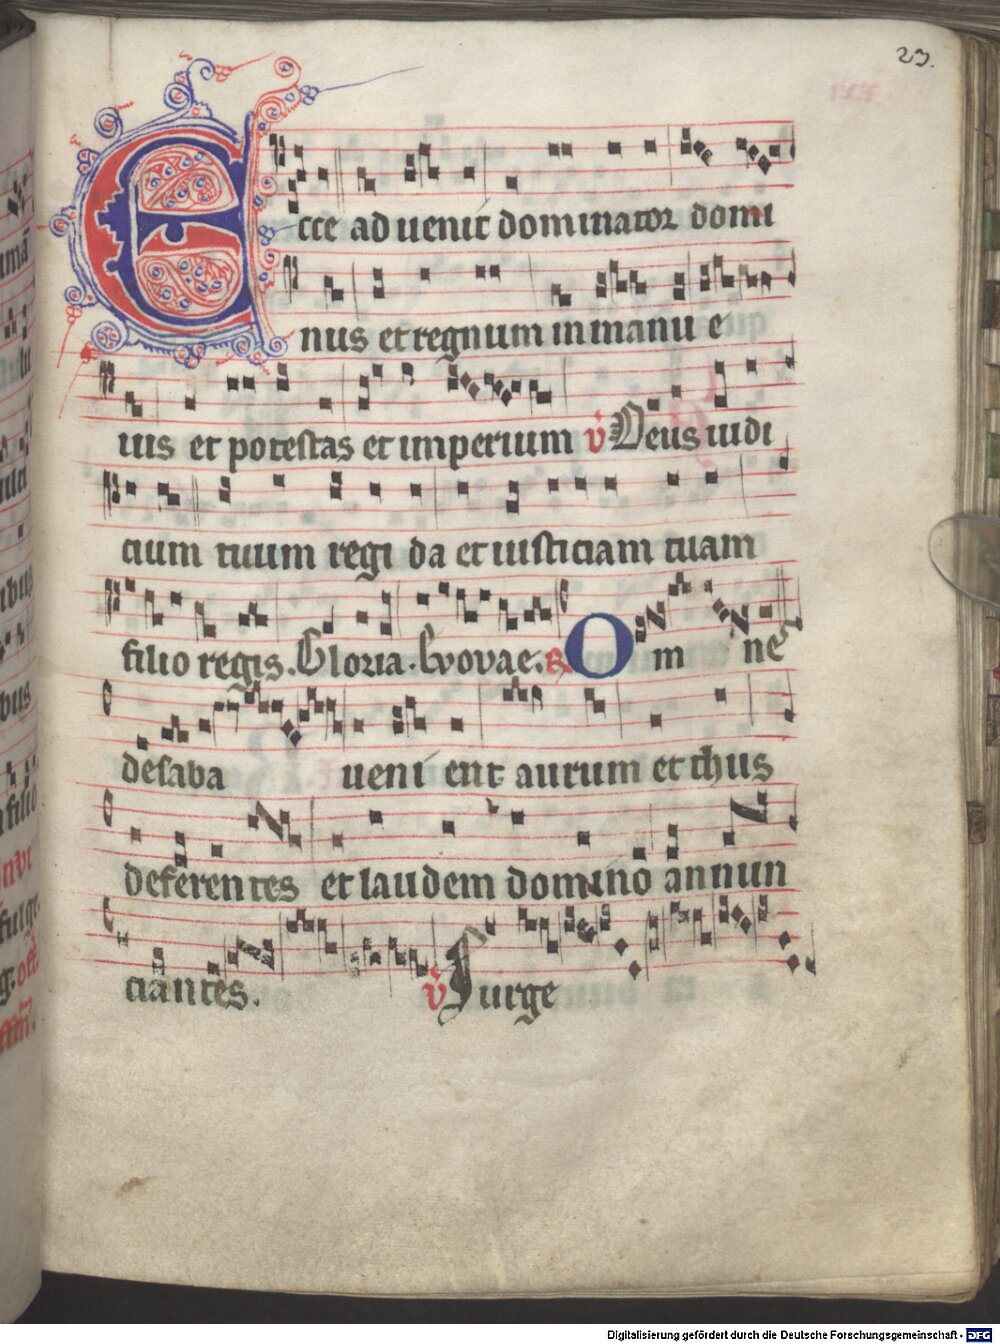 23.
Ecce ad uenit dominator domi
nus et regnum in manu e
ius et potestas et imperium v Deus iudi
cium tuum regi da et iusticiam tuam
filio regis. Gloria. Evovae. R Om ne
desaba ueni ent aurum et thus
deferentes et laudem domino annun
ciantes. v Surge
Digitalisierung gefördert durch die Deutsche Forschungsgemeinschaft - DFG